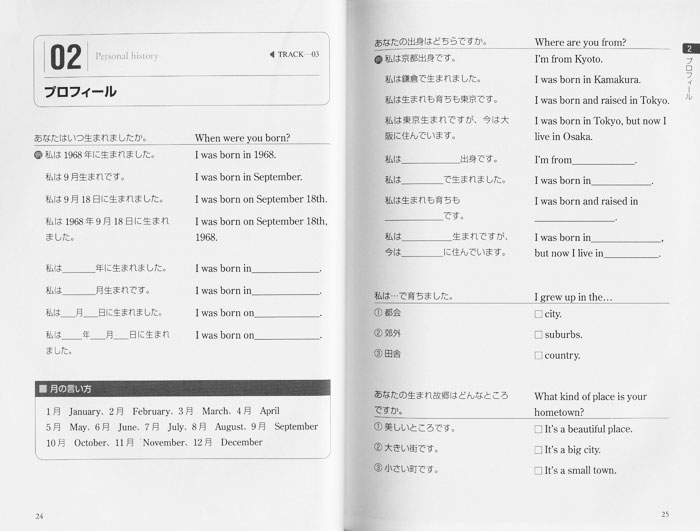 02 Personal history ◀ TRACK—03
プロフィール
あなたはいつ生まれましたか。 When were you born?
例 私は1968年に生まれました。 I was born in 1968.
私は9月生まれです。 I was born in September.
私は9月18日に生まれました。 I was born on September 18th.
私は1968年9月18日に生まれ I was born on September 18th,
ました。 1968.
私は______年に生まれました。 I was born in____________.
私は______月生まれです。 I was born in____________.
私は___月___日に生まれました。 I was born on____________.
私は____年___月___日に生まれ I was born on____________.
ました。
■ 月の言い方
1月 January、2月 February、3月 March、4月 April
5月 May、6月 June、7月 July、8月 August、9月 September
10月 October、11月 November、12月 December
24
あなたの出身はどちらですか。 Where are you from?
例 私は京都出身です。 I'm from Kyoto.
私は鎌倉で生まれました。 I was born in Kamakura.
私は生まれも育ちも東京です。 I was born and raised in Tokyo.
私は東京生まれですが、今は大 I was born in Tokyo, but now I
阪に住んでいます。 live in Osaka.
私は__________出身です。 I'm from___________.
私は_______で生まれました。 I was born in___________.
私は生まれも育ちも I was born and raised in
__________です。 ______________.
私は_________生まれですが、 I was born in____________,
今は_______に住んでいます。 but now I live in__________.
私は…で育ちました。 I grew up in the…
① 都会 □ city.
② 郊外 □ suburbs.
③ 田舎 □ country.
あなたの生まれ故郷はどんなところ What kind of place is your
ですか。 hometown?
① 美しいところです。 □ It's a beautiful place.
② 大きい街です。 □ It's a big city.
③ 小さい町です。 □ It's a small town.
25
2
プロフィール